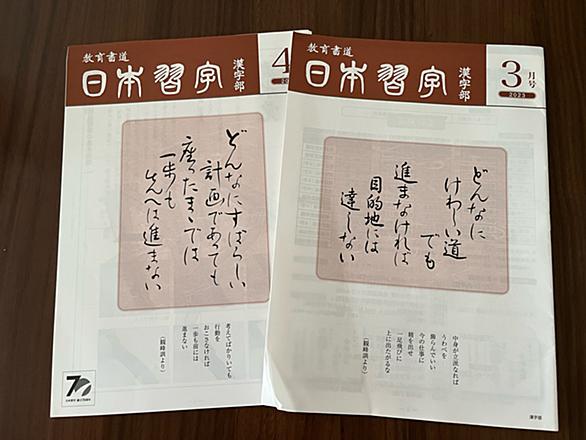 教育書道
日本習字
漢字部
4
どんなにすばらしい
計画であっても
座ったまゝでは
一歩も
先へは進まない
考えてばかりいても
行動を
おこさなければ
一歩も前には
進まない
（観峰訓より）
70
教育書道
日本習字
漢字部
3月号
2023
どんなに
けわしい道
でも
進まなければ
目的地には
達しない
中身が立派なれば
うわべを
飾らんでいい
今の仕事に
精を出せ
一足飛びに
上に出たがるな
（観峰訓より）
漢字部